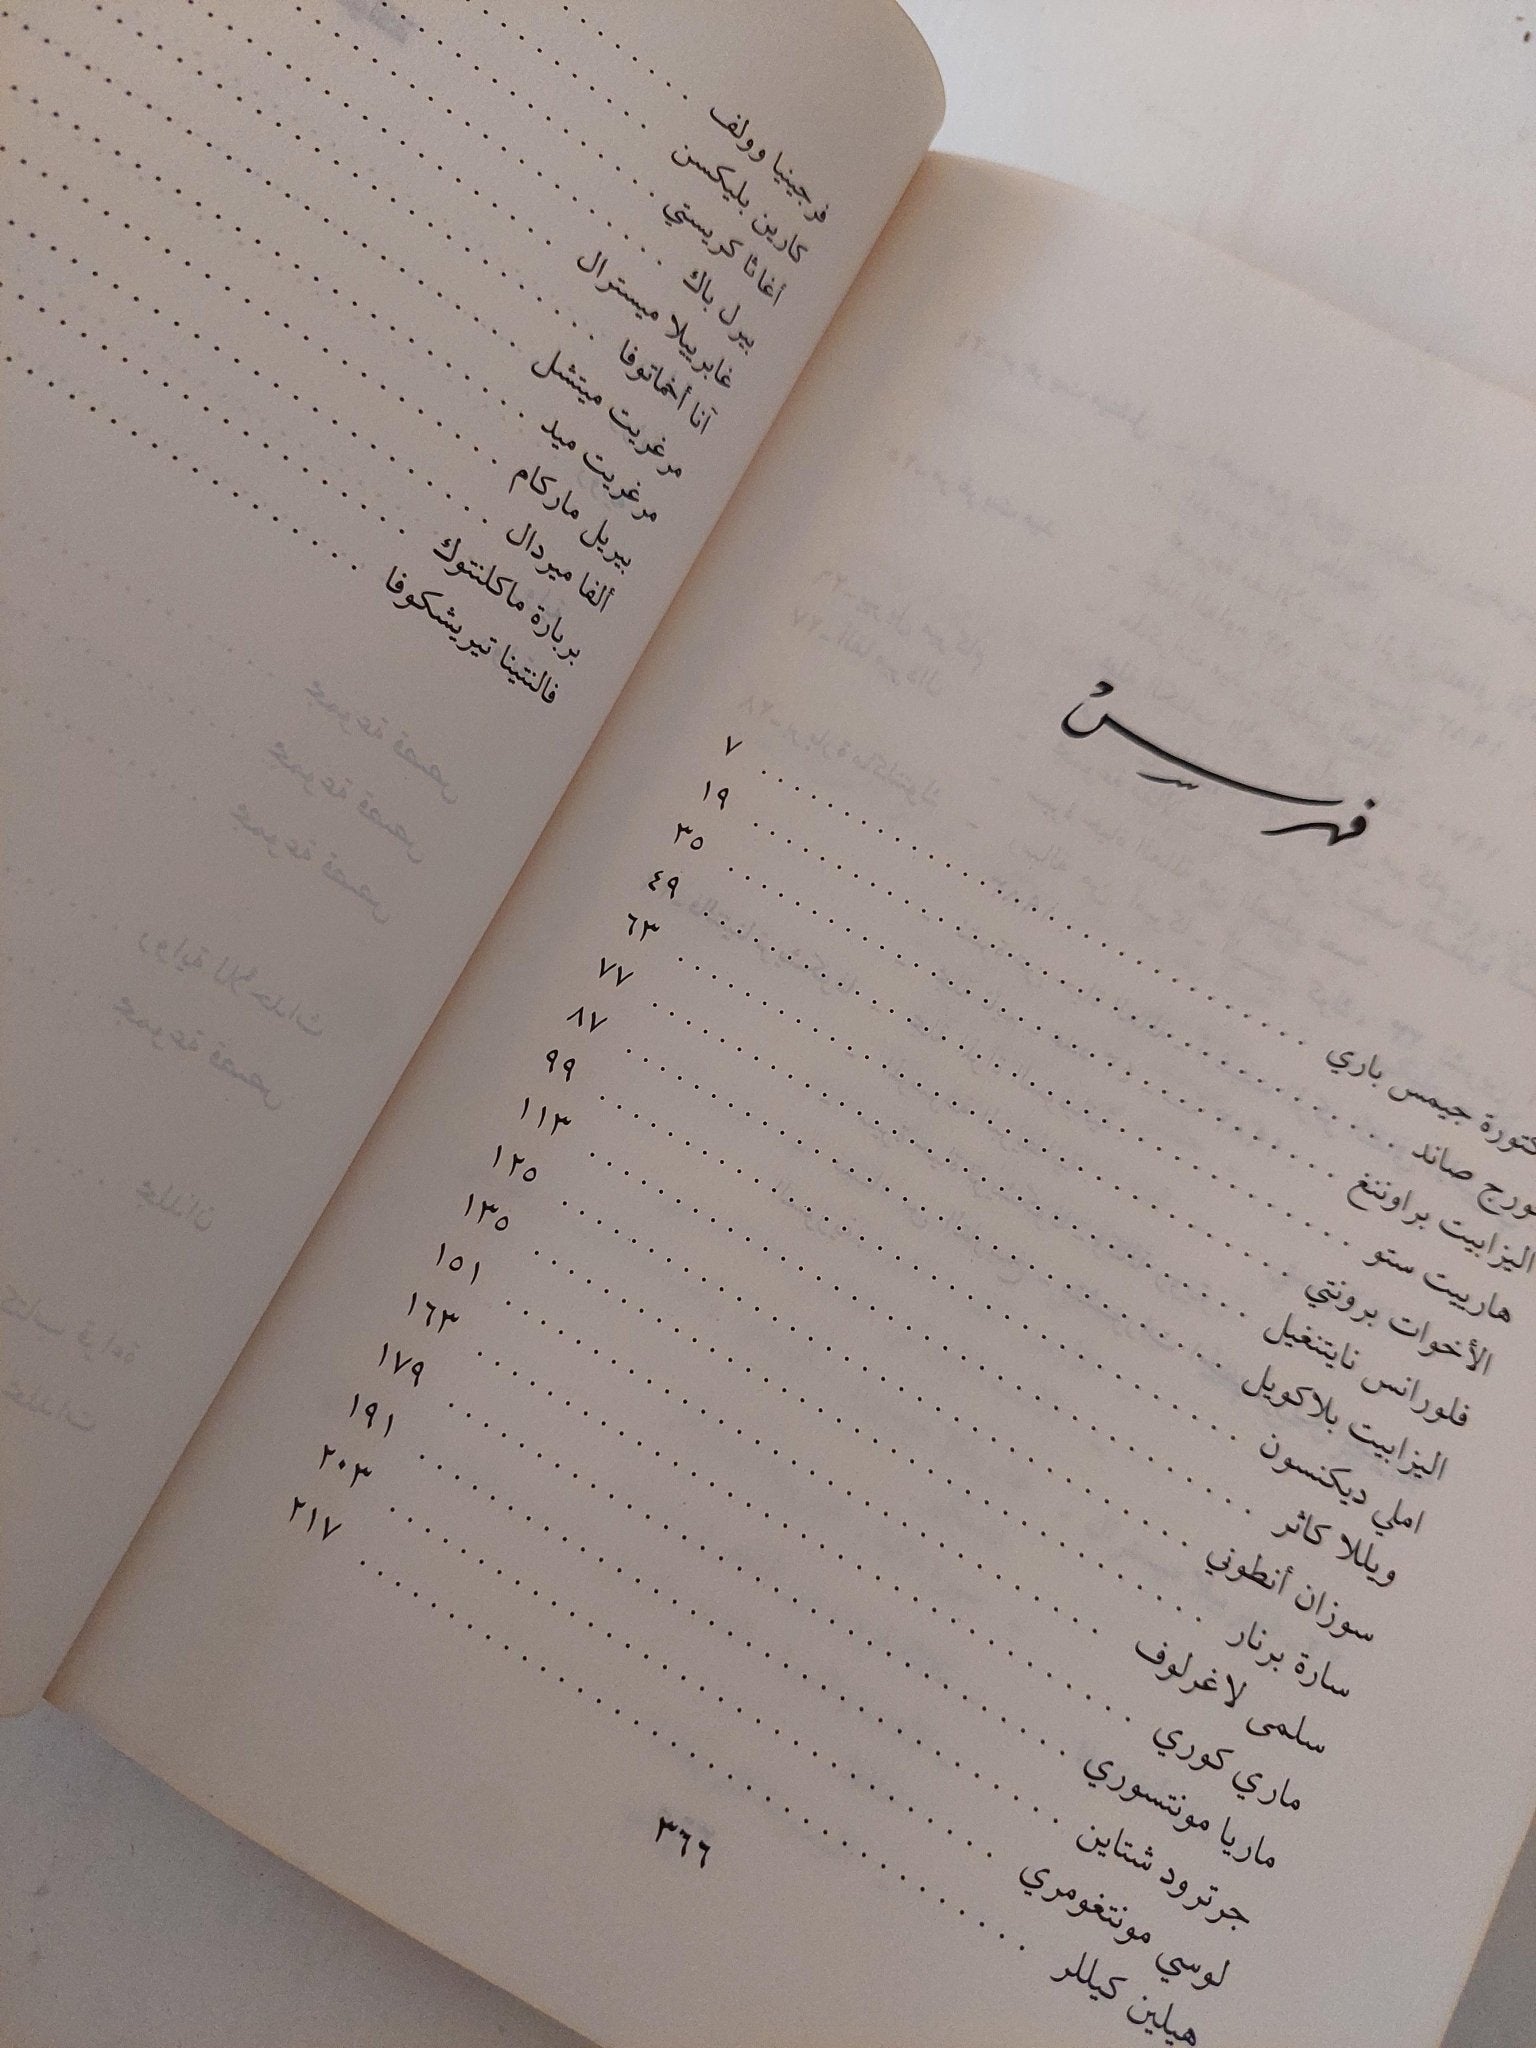 فهرس
جيمس باري ٧
صاند ١٩
اليزابيت براوننغ ٣٥
هارييت ستو ٤٩
الأخوات برونتي ٦٣
فلورانس نايتنغيل ٧٧
اليزابيت بلاكويل ٨٧
املي ديكنسون ٩٩
ويللا كاثر ١١٣
سوزان أنطوني ١٢٥
سارة برنار ١٣٥
سلمى لاغرلوف ١٥١
ماري كوري ١٦٣
ماريا مونتسوري ١٧٩
جرترود شتاين ١٩١
لوسي مونتغومري ٢٠٣
هيلين كيللر ٢١٧
٣٦٦
فرجينيا وولف
كارين بليكسن
أغاثا كريستي
بيرل باك
غابرييلا ميسترال
آنا أخماتوفا
مرغريت ميتشل
مرغريت ميد
بيريل ماركام
ألفا ميردال
بربارة ماكلنتوك
فالنتينا تيريشكوفا